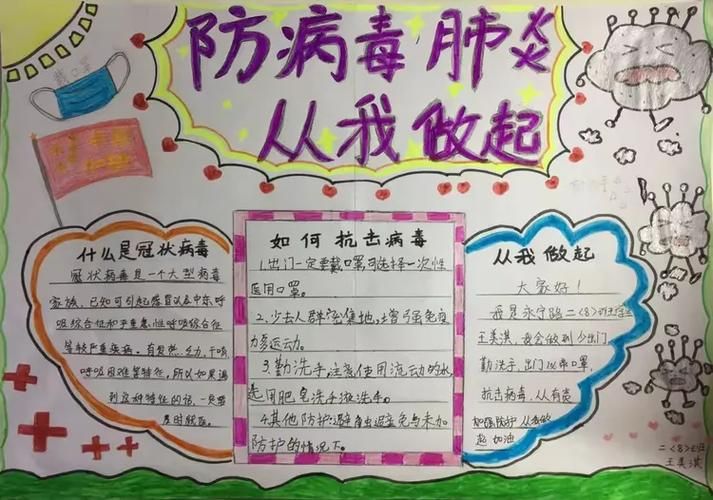 防病毒肺炎
从我做起
戴口罩
什么是冠状病毒
冠状病毒是一个大型病毒
家族，已知可引起感冒以及中东呼
吸综合征和严重急性呼吸综合征
等较严重疾病。有发热、乏力、干咳
呼吸困难等特征，所以如果遇
到这种特征的话，一定要
及时就医。
如何抗击病毒
1.出门一定要戴口罩，可选择一次性
医用口罩。
2.少去人群密集地，增强免疫
力多运动。
3.勤洗手，注意使用流动的水
用肥皂洗手液洗手。
4.其他防护:避免与未加
防护的情况下。
从我做起
大家好！
我是永宁8路二〈8〉班
王美淇，我会做到少出门、
勤洗手、出门必带口罩，
抗击病毒，从有炎
加强防护 从我做
起 加油
二〈8〉班
王美淇